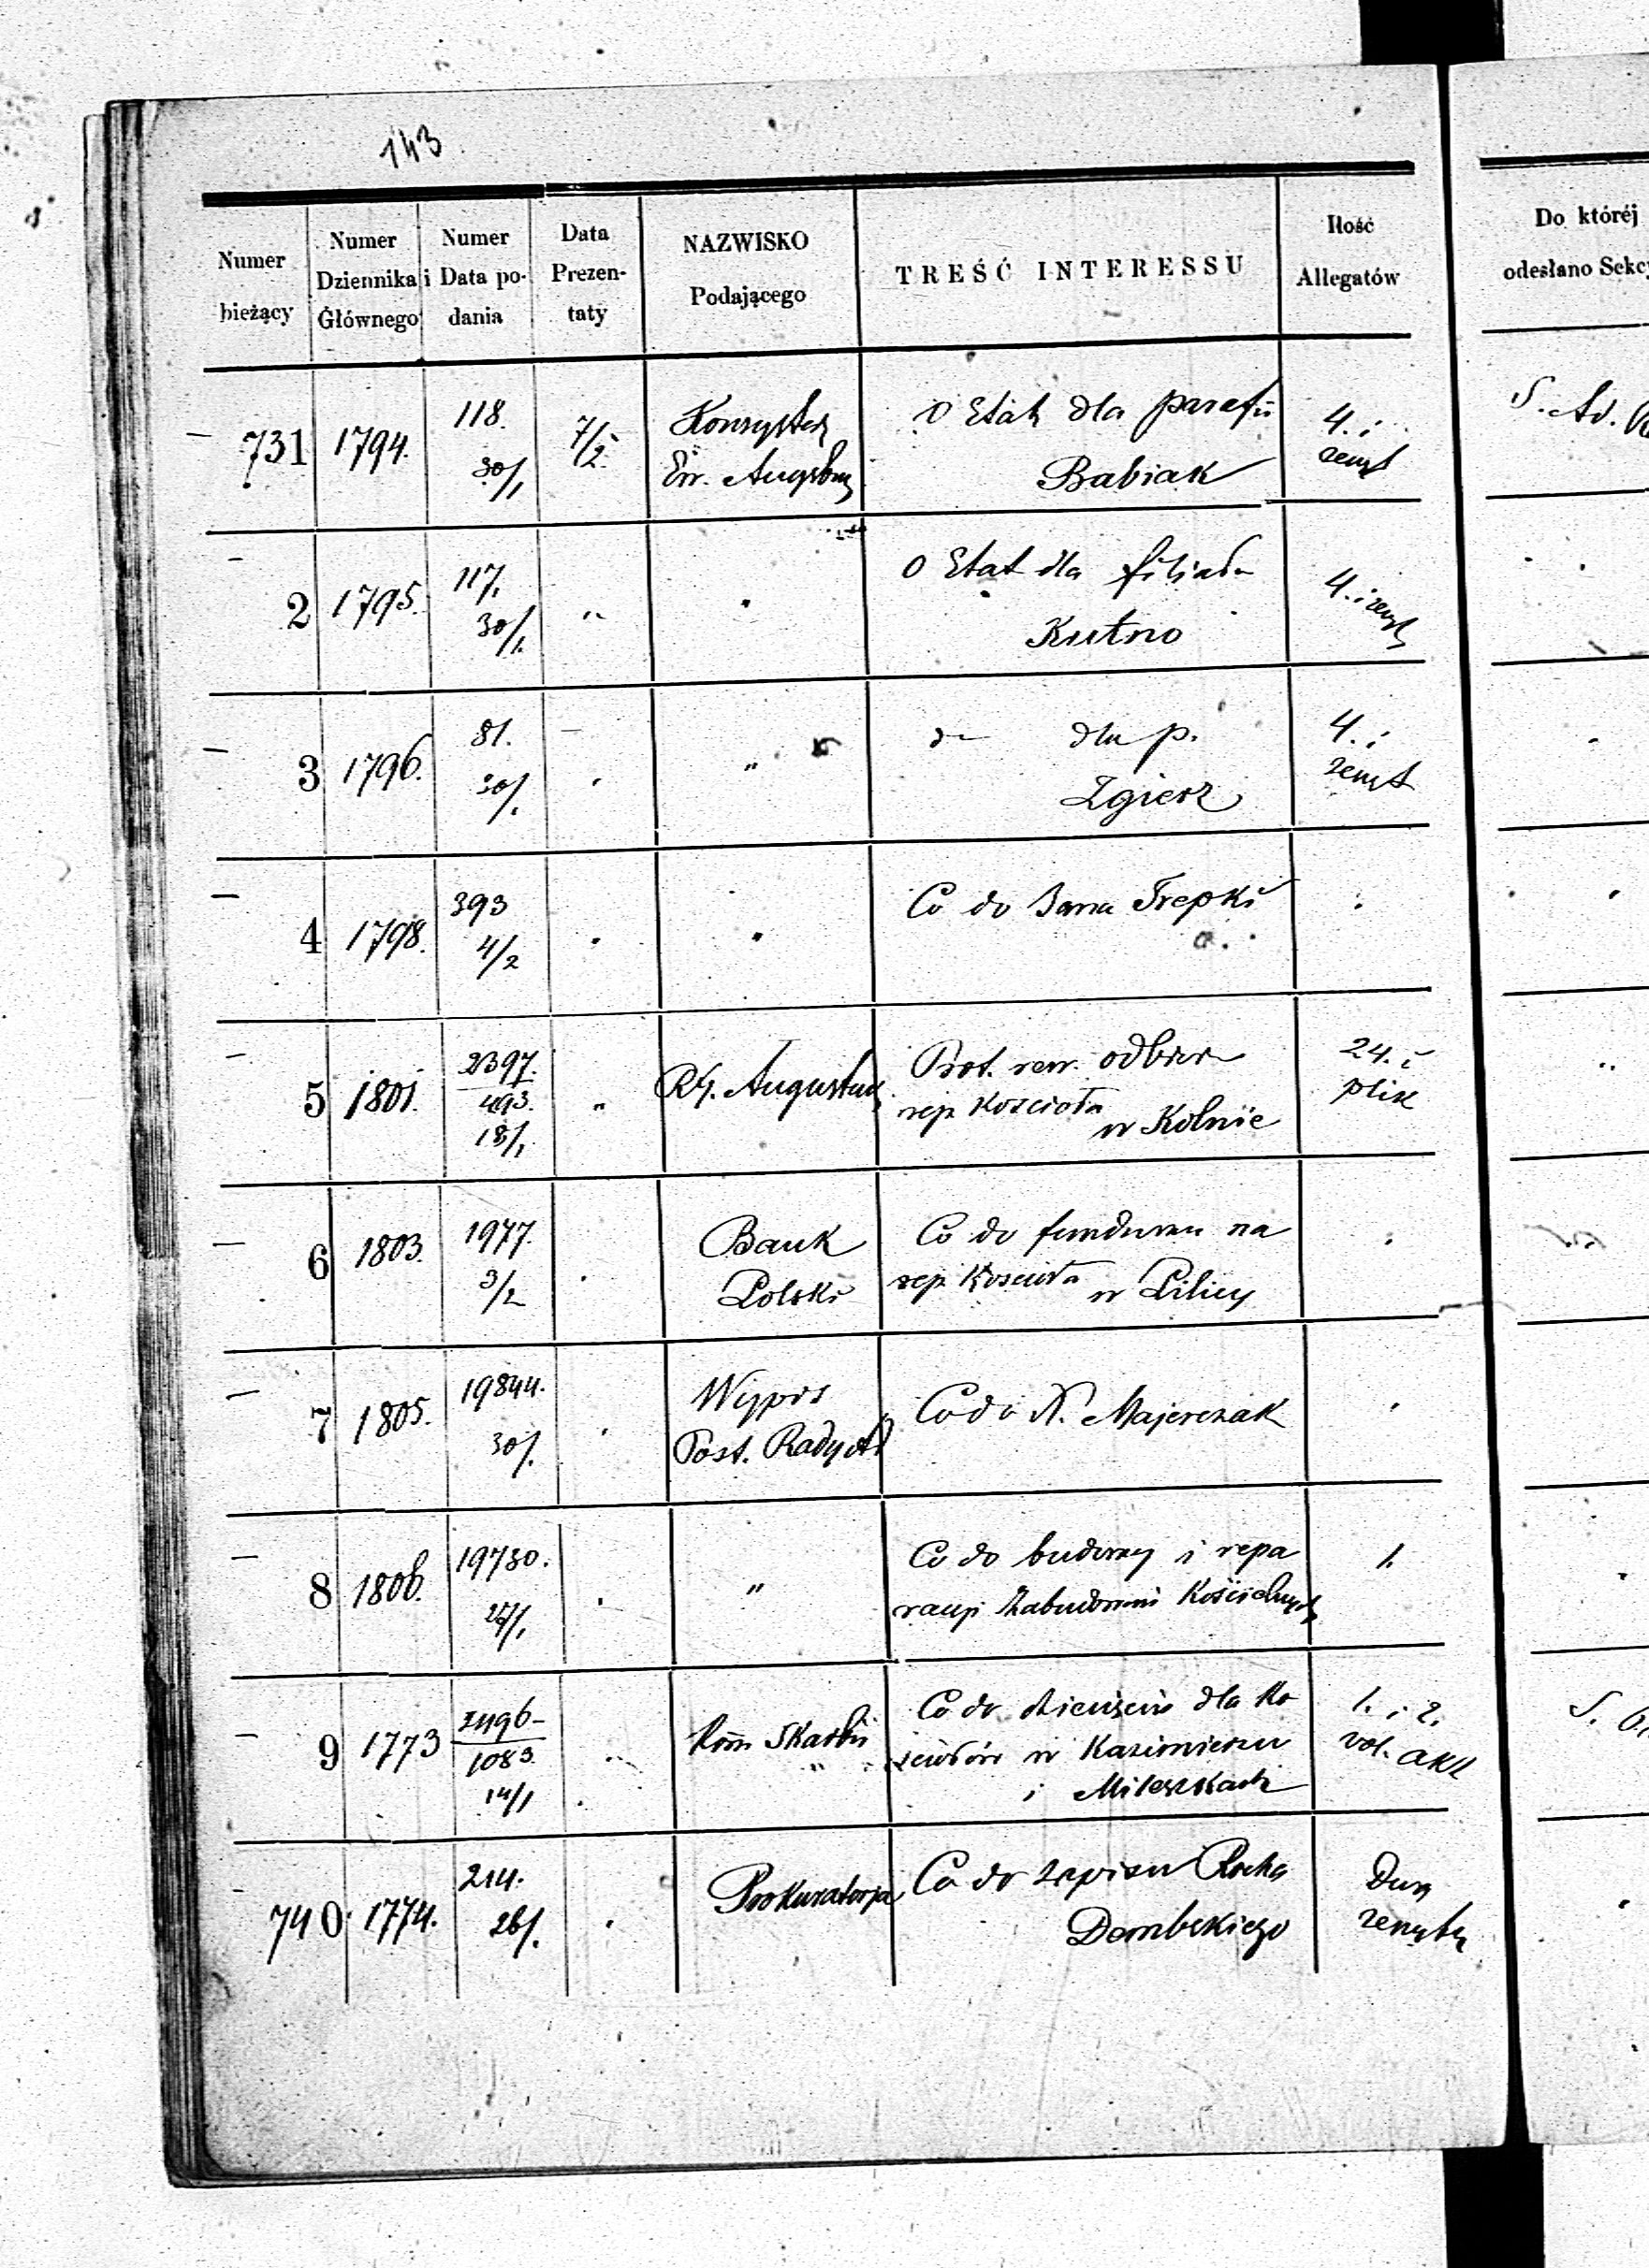 143
Numer bieżący
Numer Dziennika Głównego
Numer i Data podania
Data Prezentaty
NAZWISKO Podającego
TREŚĆ INTERESSU
Ilość Allegatów
Do któréj odesłano Sekc
731 1794. 118. 30/1 7/2. Konsystorz Ew. Augsbur 0 Etat dla parafii Babiak 4. i zeszt
2 1795. 117. 30/1. " 0 Etat dla filiału Kutno 4. i zeszt
3 1796. 81. 30/1. " dla p. Zgierz 4. i zeszt
4 1798. 393 4/2 Co do Jana Trepki
5 1801. 2397. 493. 18/1. " R.G. Augustow Prot. rew. odbior rep. Kościoła w Kolnie 24. i plik
6 1803. 1977. 3/2 Bank Polski Co do funduszu na rep. Kościoła w Pilicy
7 1805. 19844. 30/1. Wypis Post. Rady Co do N. Majerczak
8 1806. 19730. 27/1. " Co do budowy i reparacyi Zabudowań Kościelnych 1.
9 1773 2496 1083. 14/1 Kom Skarbu Co do dla Kościołów w Kazimierzu i Mileszkach 1. i 2. vol. akt
740 1774. 214. 26/1. Prokuratorja Co do zapisu Rocha Dembskiego Dwa zeszyty